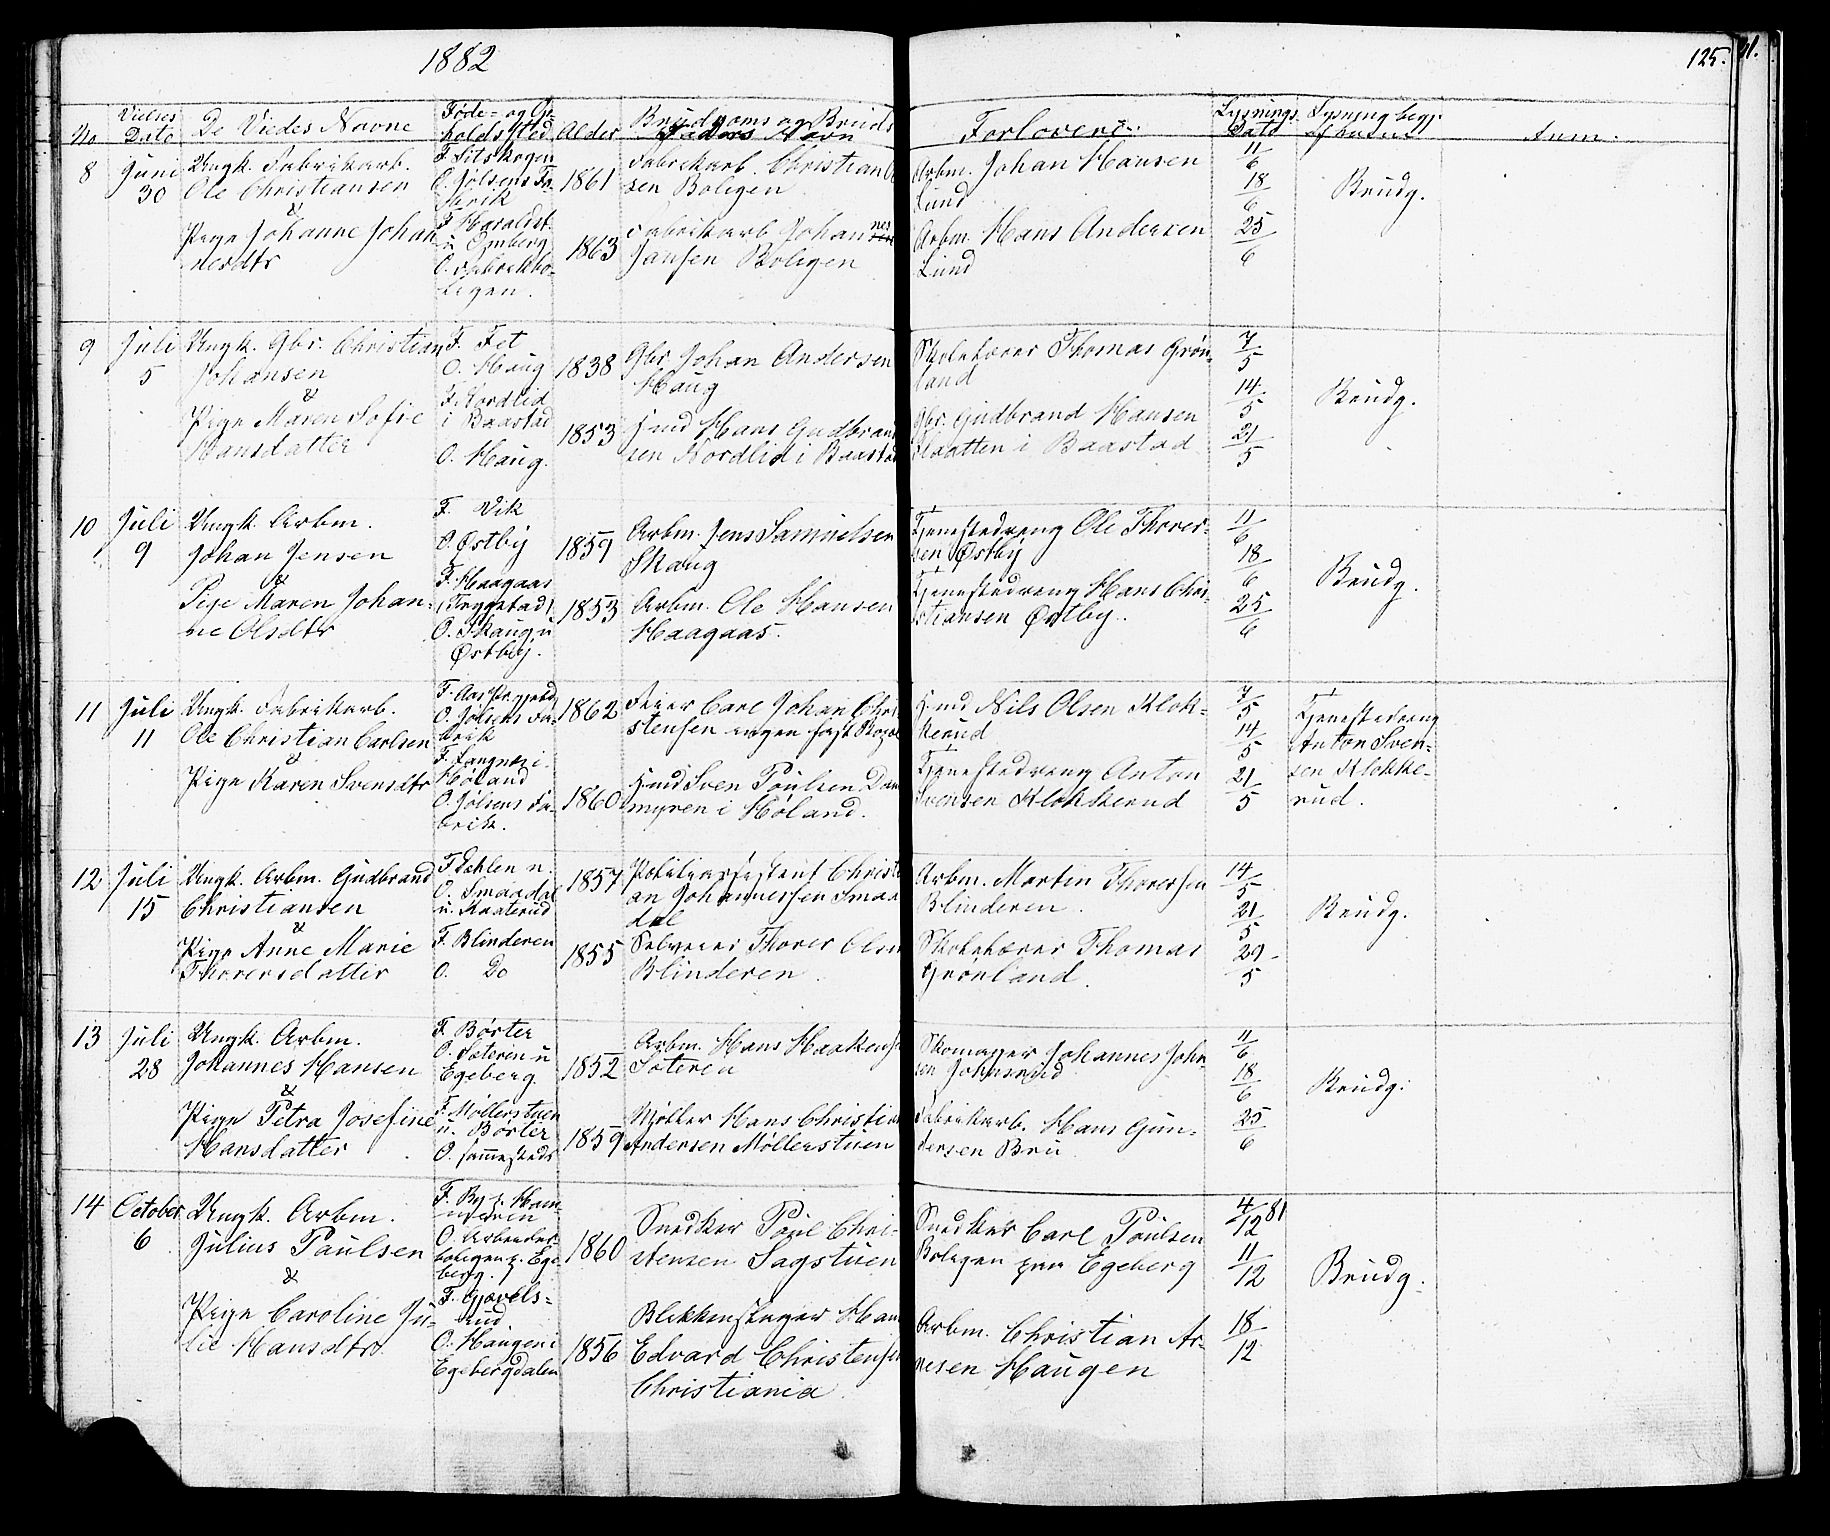 1882
125.
No
Vielses Dato
De Viedes Navne
Føde- og Op-
holdssted
Alder
Brudgoms og Bruds
Faders Navn
Forlovere.
Lysnings
Dato
Lysning begj:
Anm:
8
Juni
30
Ungk. Fabrikarb.
Ole Christiansen
&
Pige Johanne Johan
nesdtr
F. Sitskogen
O. Jølsens Fa-
brik
F. Haraldst.
u. Omberg
O. Fabrikbo-
ligen.
1861
1863
Fabrikarb. Christian
sen Boligen
Fabrikarb Johannes
Jansen Boligen
Arbm. Johan Hansen
Lund
Arbm. Hans Andersen
Lund
11/6
18/6
25/6
Brudg.
9
Juli
5
Ungk. Gbr. Christian
Johansen
&
Pige Maren Sofie
Hansdatter
F. Fet
O. Haug
F. Nordlid
i Baastad
O. Haug.
1838
1853
Gbr. Johan Andersen
Haug
Hmd Hans Gudbrand
sen Nordlid i Baastad
Skolelærer Thomas Grøn-
land
Gbr. Gudbrand Hansen
Slaatten i Baastad
7/5
14/5
21/5
Brudg.
10
Juli
9
Ungk. Arbm.
Johan Jensen
&
Pige Maren Johan-
ne Olsdtr
F. Vik
O. Østby
F. Haagaas
(Trygstad)
O. Skaug u
Østby.
1859
1853
Arbm. Jens Samuelsen
Skaug
Arbm. Ole Hansen
Haagaas.
Tjenestedreng Ole Thorer-
sen Østby
Tjenestedreng Hans Chri-
stiansen Østby.
11/6
18/6
25/6
Brudg.
11
Juli
11
Ungk. Fabrikarb.
Ole Christian Carlsen
&
Pige Karen Svensdtr
O. Jølsens Fa-
brik
F. Langnæs i
Høland
O. Jølsens Fa-
brik.
1862
1860
Feier Carl Johan Chri
stensen ingen fast Bopæl
Hmd Sven Poulsen Dam
myren i Høland.
Hmd Nils Olsen Klok-
kerud
Tjenestedreng Anton
Svensen Klokkerud
7/5
14/5
21/5
Tjenestedreng
Anton Sven-
sen Klokke-
rud.
12
Juli
15
Ungk. Arbm. Gudbrand
Christiansen
&
Pige Anne Marie
Thorersdatter
F. Dahlen u.
O. Smaadal
u. Kraaterud
F. Blinderen
O. Do
1857
1855
Politiassistent Christi
an Johannessen Smaa
dal
Selveier Thorer Olsen
Blinderen.
Arbm. Martin Thorersen
Blinderen.
Skolelærer Thomas
Grønland.
14/5
21/5
29/5
Brudg.
13
Juli
28
Ungk. Arbm.
Johannes Hansen
&
Pige Petra Josefine
Hansdatter
F. Børter
O. Sæteren u
Egeberg.
F. Møllerstuen
u. Børter
O. sammesteds
1852
1859
Arbm. Hans Haakens
Sæteren
Møller Hans Christian
Andersen Møllerstuen
Skomager Johannes John
sen Johnsrud
Fabrikarb. Hans Gun-
dersen Bru
11/6
18/6
25/6
Brudg.
14
October
6
Ungk. Arbm.
Julius Paulsen
&
Pige Caroline Ju-
lie Hansdtr.
O. Arbeider
boligen p. Ege
berg.
F. Gjævels-
rud
O. Haugen i
Egebergdalen
1860
1856
Snedker Poul Chri-
stensen Sagstuen
Blikkenslager Hans
Edvard Christensen
Christiania.
Snedker Carl Poulsen
Boligen paa Egeberg
Arbm. Christian Ar-
nesen Haugen
4/12 81
11/12
18/12
Brudg.